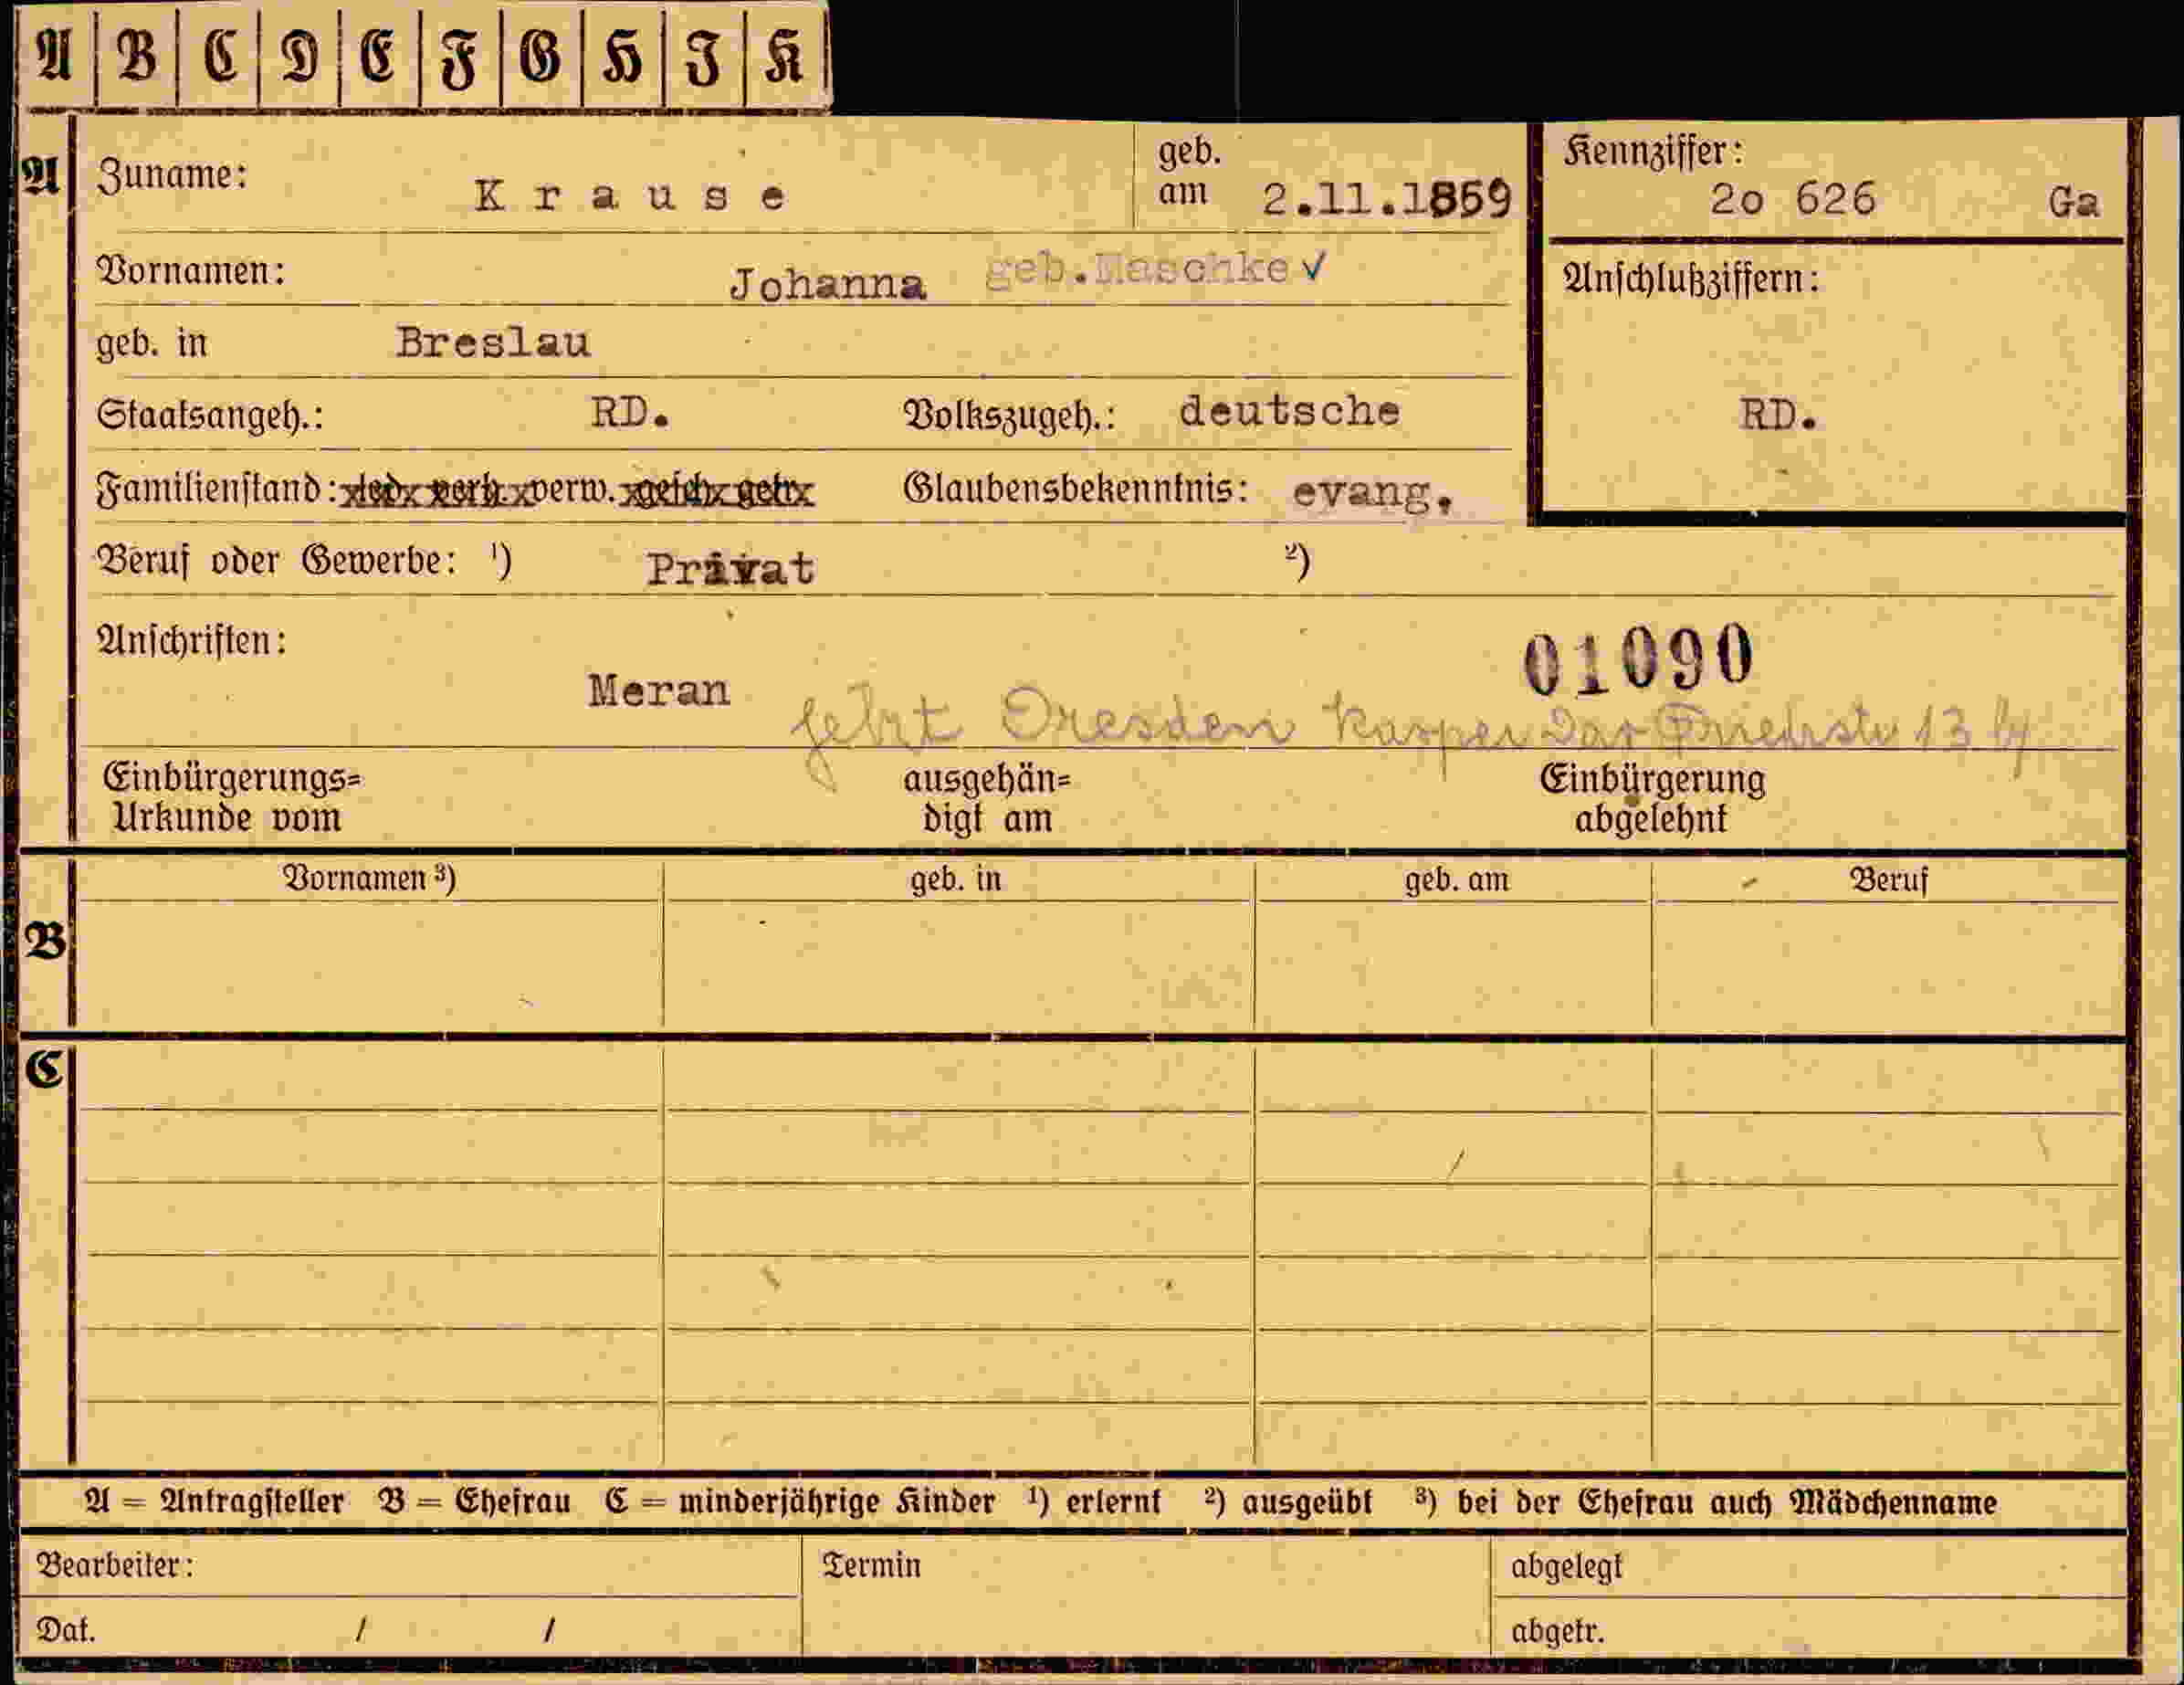 A B C D E F G H I K
A Zuname: Krause geb. am 2.11.1859 Kennziffer: 2o 626 Ga
Vornamen: Johanna geb.Maschke ✓ Anschlußziffern:
geb. in Breslau
Staatsangeh.: RD. Volkszugeh.: deutsche RD.
Familienstand: led. verh. verw. gesch. getr. Glaubensbekenntnis: evang.
Beruf oder Gewerbe: ¹) Privat ²)
Anschriften: 01090
Meran jetzt Dresden
Einbürgerungs= ausgehän= Einbürgerung
Urkunde vom digt am abgelehnt
Vornamen ³) geb. in geb. am Beruf
B
C
A = Antragsteller B = Ehefrau C = minderjährige Kinder ¹) erlernt ²) ausgeübt ³) bei der Ehefrau auch Mädchenname
Bearbeiter: Termin abgelegt
Dat. / / abgetr.